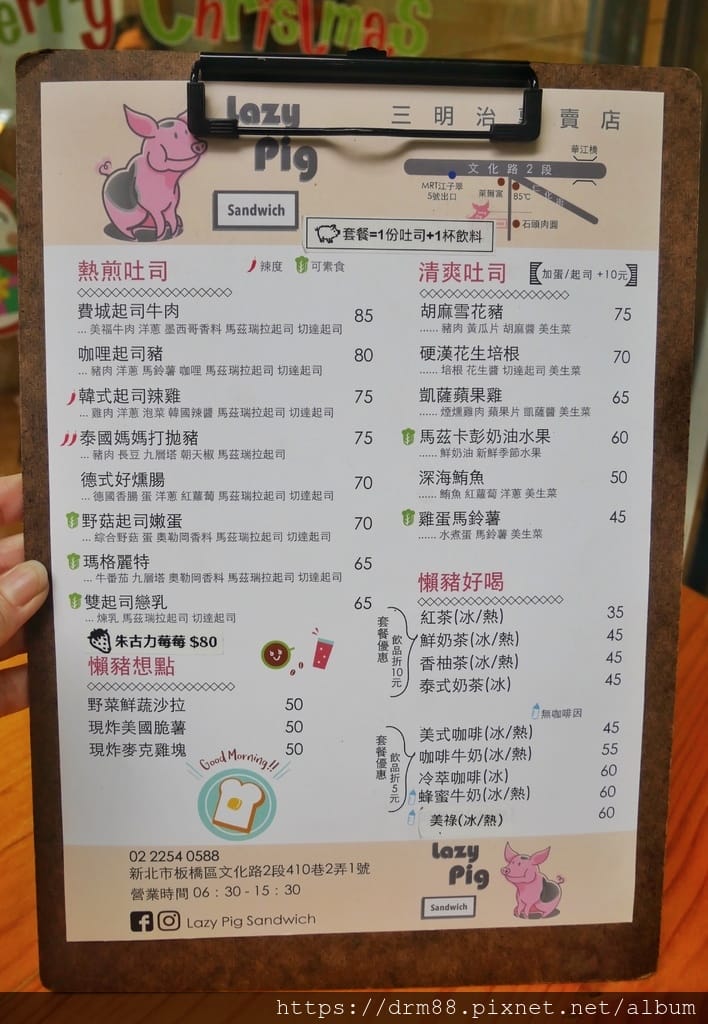 erry Christmas
Lazy Pig
三明治 賣店
Sandwich
文化路2段
華江橋
MRT江子翠
5號出口
萊爾富
85℃
石頭肉圓
套餐=1份吐司+1杯飲料
熱煎吐司
辣度
可素食
費城起司牛肉 85
... 美福牛肉 洋蔥 墨西哥香料 馬茲瑞拉起司 切達起司
咖哩起司豬 80
... 豬肉 洋蔥 馬鈴薯 咖哩 馬茲瑞拉起司 切達起司
韓式起司辣雞 75
... 雞肉 洋蔥 泡菜 韓國辣醬 馬茲瑞拉起司 切達起司
泰國媽媽打拋豬 75
... 豬肉 長豆 九層塔 朝天椒 馬茲瑞拉起司
德式好燻腸 70
... 德國香腸 蛋 洋蔥 紅蘿蔔 馬茲瑞拉起司 切達起司
野菇起司嫩蛋 70
... 綜合野菇 蛋 奧勒岡香料 馬茲瑞拉起司 切達起司
瑪格麗特 65
... 牛番茄 九層塔 奧勒岡香料 馬茲瑞拉起司 切達起司
雙起司戀乳 65
... 煉乳 馬茲瑞拉起司 切達起司
朱古力莓莓 $80
懶豬想點
野菜鮮蔬沙拉 50
現炸美國脆薯 50
現炸麥克雞塊 50
Good Morning!!
清爽吐司
加蛋/起司 +10元
胡麻雪花豬 75
...... 豬肉 黃瓜片 胡麻醬 美生菜
硬漢花生培根 70
...... 培根 花生醬 切達起司 美生菜
凱薩蘋果雞 65
...... 煙燻雞肉 蘋果片 凱薩醬 美生菜
馬茲卡彭奶油水果 60
...... 鮮奶油 新鮮季節水果
深海鮪魚 50
...... 鮪魚 紅蘿蔔 洋蔥 美生菜
雞蛋馬鈴薯 45
...... 水煮蛋 馬鈴薯 美生菜
懶豬好喝
套餐優惠
飲品折10元
紅茶(冰/熱) 35
鮮奶茶(冰/熱) 45
香柚茶(冰/熱) 45
泰式奶茶(冰) 45
無咖啡因
套餐優惠
飲品折5元
美式咖啡(冰/熱) 45
咖啡牛奶(冰/熱) 55
冷萃咖啡(冰) 60
蜂蜜牛奶(冰/熱) 60
美祿(冰/熱) 60
02 2254 0588
新北市板橋區文化路2段410巷2弄1號
營業時間 06：30 - 15：30
Lazy Pig Sandwich
Lazy Pig
Sandwich
https://drm88.pixnet.net/album